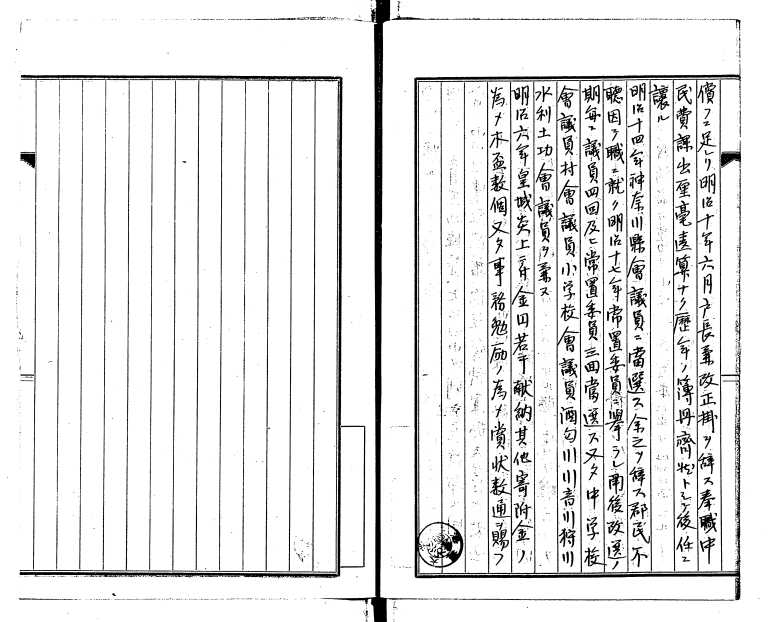 償フニ足レリ明治十年六月戸長兼改正掛ヲ辞ス奉職中
民費課出厘毫違算ナク歴年ノ簿冊済然トシテ後任ニ
譲ル
明治十四年神奈川縣會議員ニ當選ス余之ヲ辞ス郡民不
聴因テ職ニ就ク明治十七年常置委員ニ擧ラレ爾後改選ノ
期毎ニ議員四回及ヒ常置委員三回當選ス又タ中学校
會議員村會議員小学校會議員酒匂川川音川狩川
水利土功會議員ヲ兼ス
明治六年皇城炎上ニ付金円若干献納其他寄附金ノ
為メ木盃数個又タ事務勉励ノ為メ賞状数通ヲ賜フ